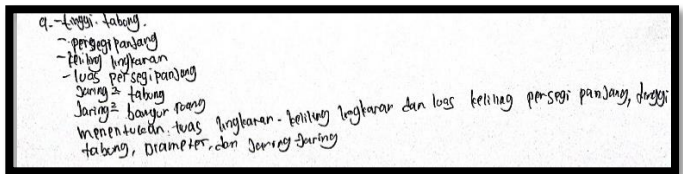 a. - tinggi. tabung.
- persegi panjang
- keliling lingkaran
- luas persegi panjang
Jaring² tabung
Jaring² bangun ruang
menentukan. luas lingkaran - keliling lingkaran dan luas keliling persegi panjang, tinggi
tabung, Diameter, dan Jaring-Jaring